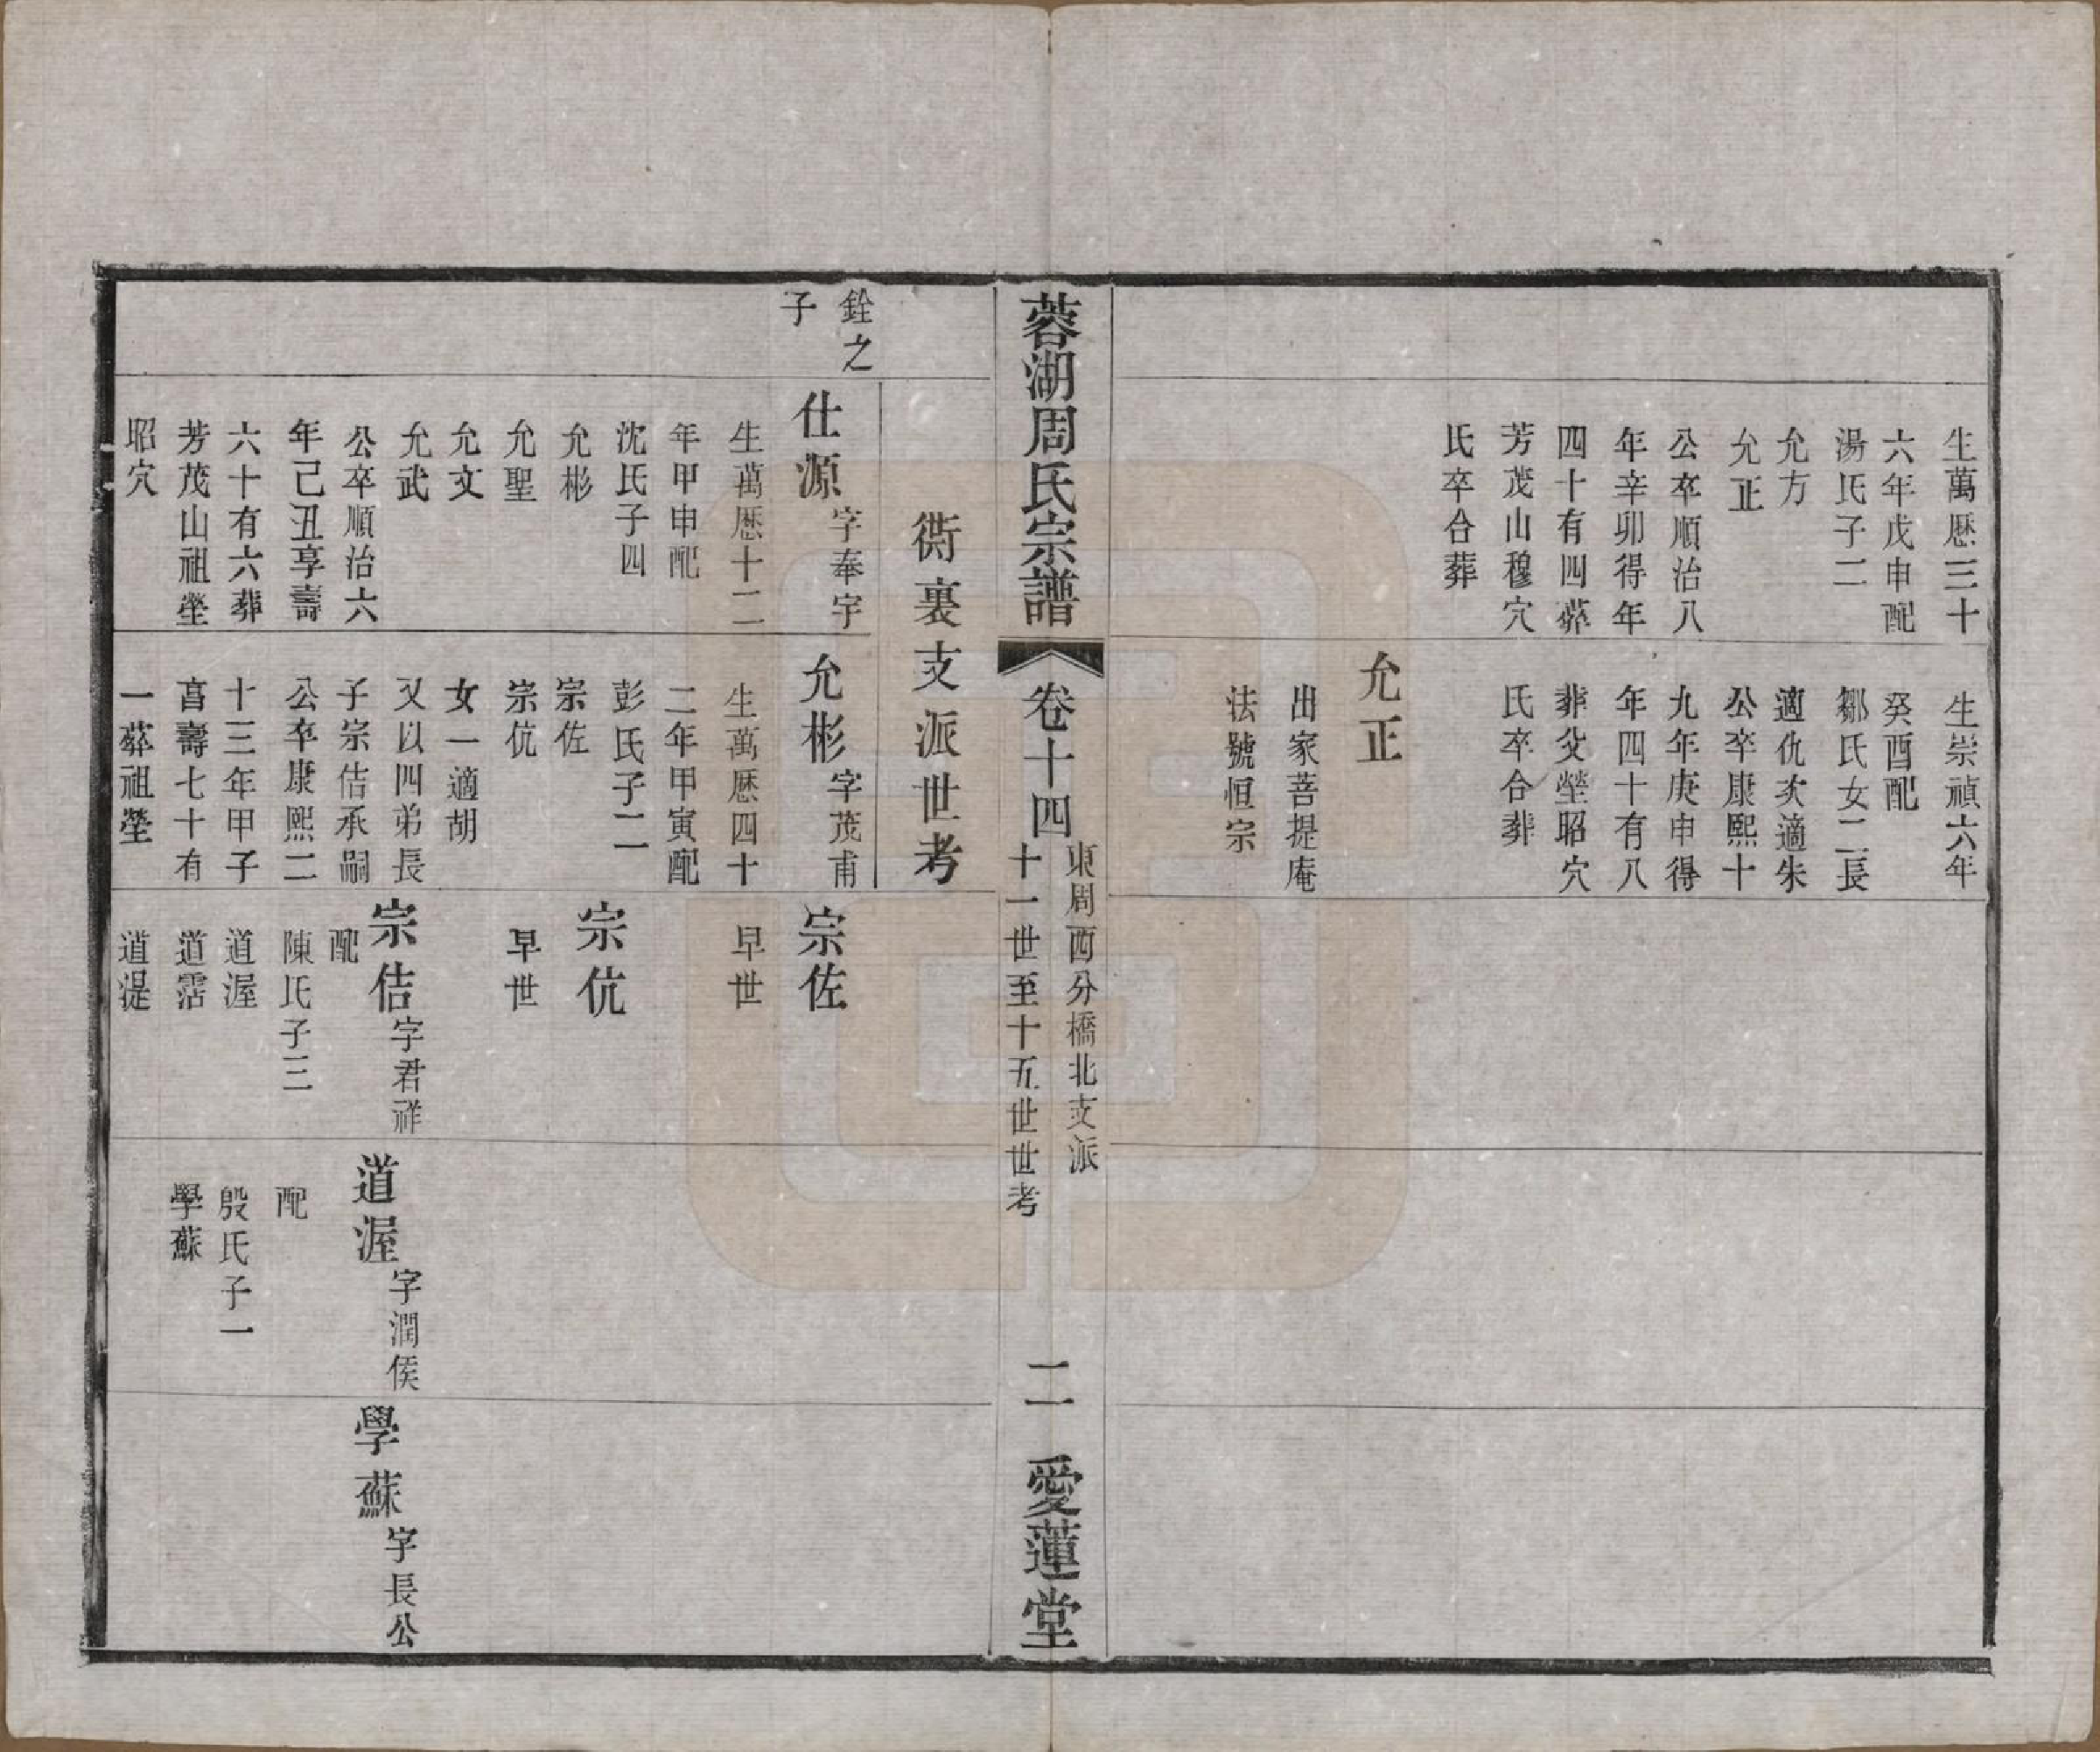 生萬厯三十
六年戊申配
湯氏子二
允方
允正
公卒順治八
年辛卯得年
四十有四葬
芳茂山穆穴
氏卒合葬
生崇禎六年
癸酉配
鄒氏女二長
適仇次適朱
公卒康熙十
九年庚申得
年四十有八
葬父塋昭穴
氏卒合葬
允正
出家菩提庵
法號恒宗
蓉湖周氏宗譜
卷十四
東周西分橋北支派
十一世至十五世世考
二
愛蓮堂
衖裏支派世考
銓之
子
仕源字奉宇
生萬厯十二
年甲申配
沈氏子四
允彬
允聖
允文
允武
公卒順治六
年己丑享壽
六十有六葬
芳茂山祖塋
昭穴
允彬字茂甫
生萬厯四十
二年甲寅配
彭氏子二
宗佐
宗伉
女一適胡
又以四弟長
子宗佶承嗣
公卒康熙二
十三年甲子
享壽七十有
一葬祖塋
宗佐
早世
宗伉
早世
宗佶字君祥
配
陳氏子三
道渥
道霑
道湜
道渥字潤侯
配
殷氏子一
學蘇
學蘇字長公